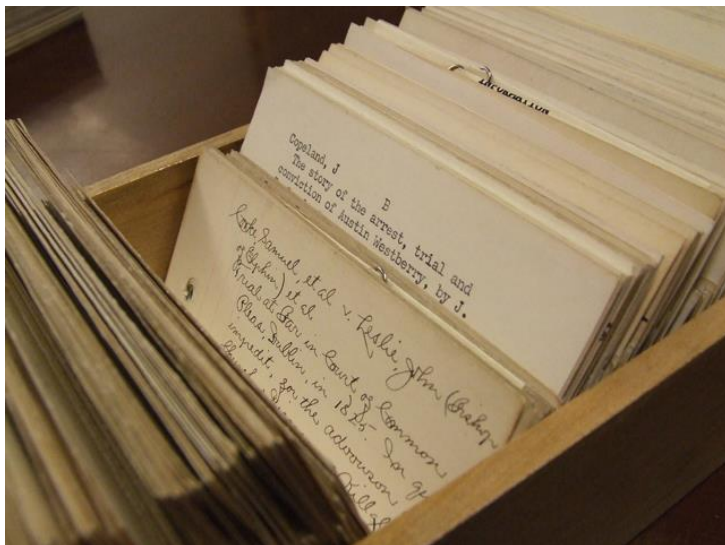 Copeland, J B
The story of the arrest, trial and
conviction of Austin Westberry, by J.
Samuel et al v. Leslie, John (Bishop
of Elphin) et al.
Trial at Bar in Court of Common
Pleas, Dublin, in 1825. In
impedit, for the advowson